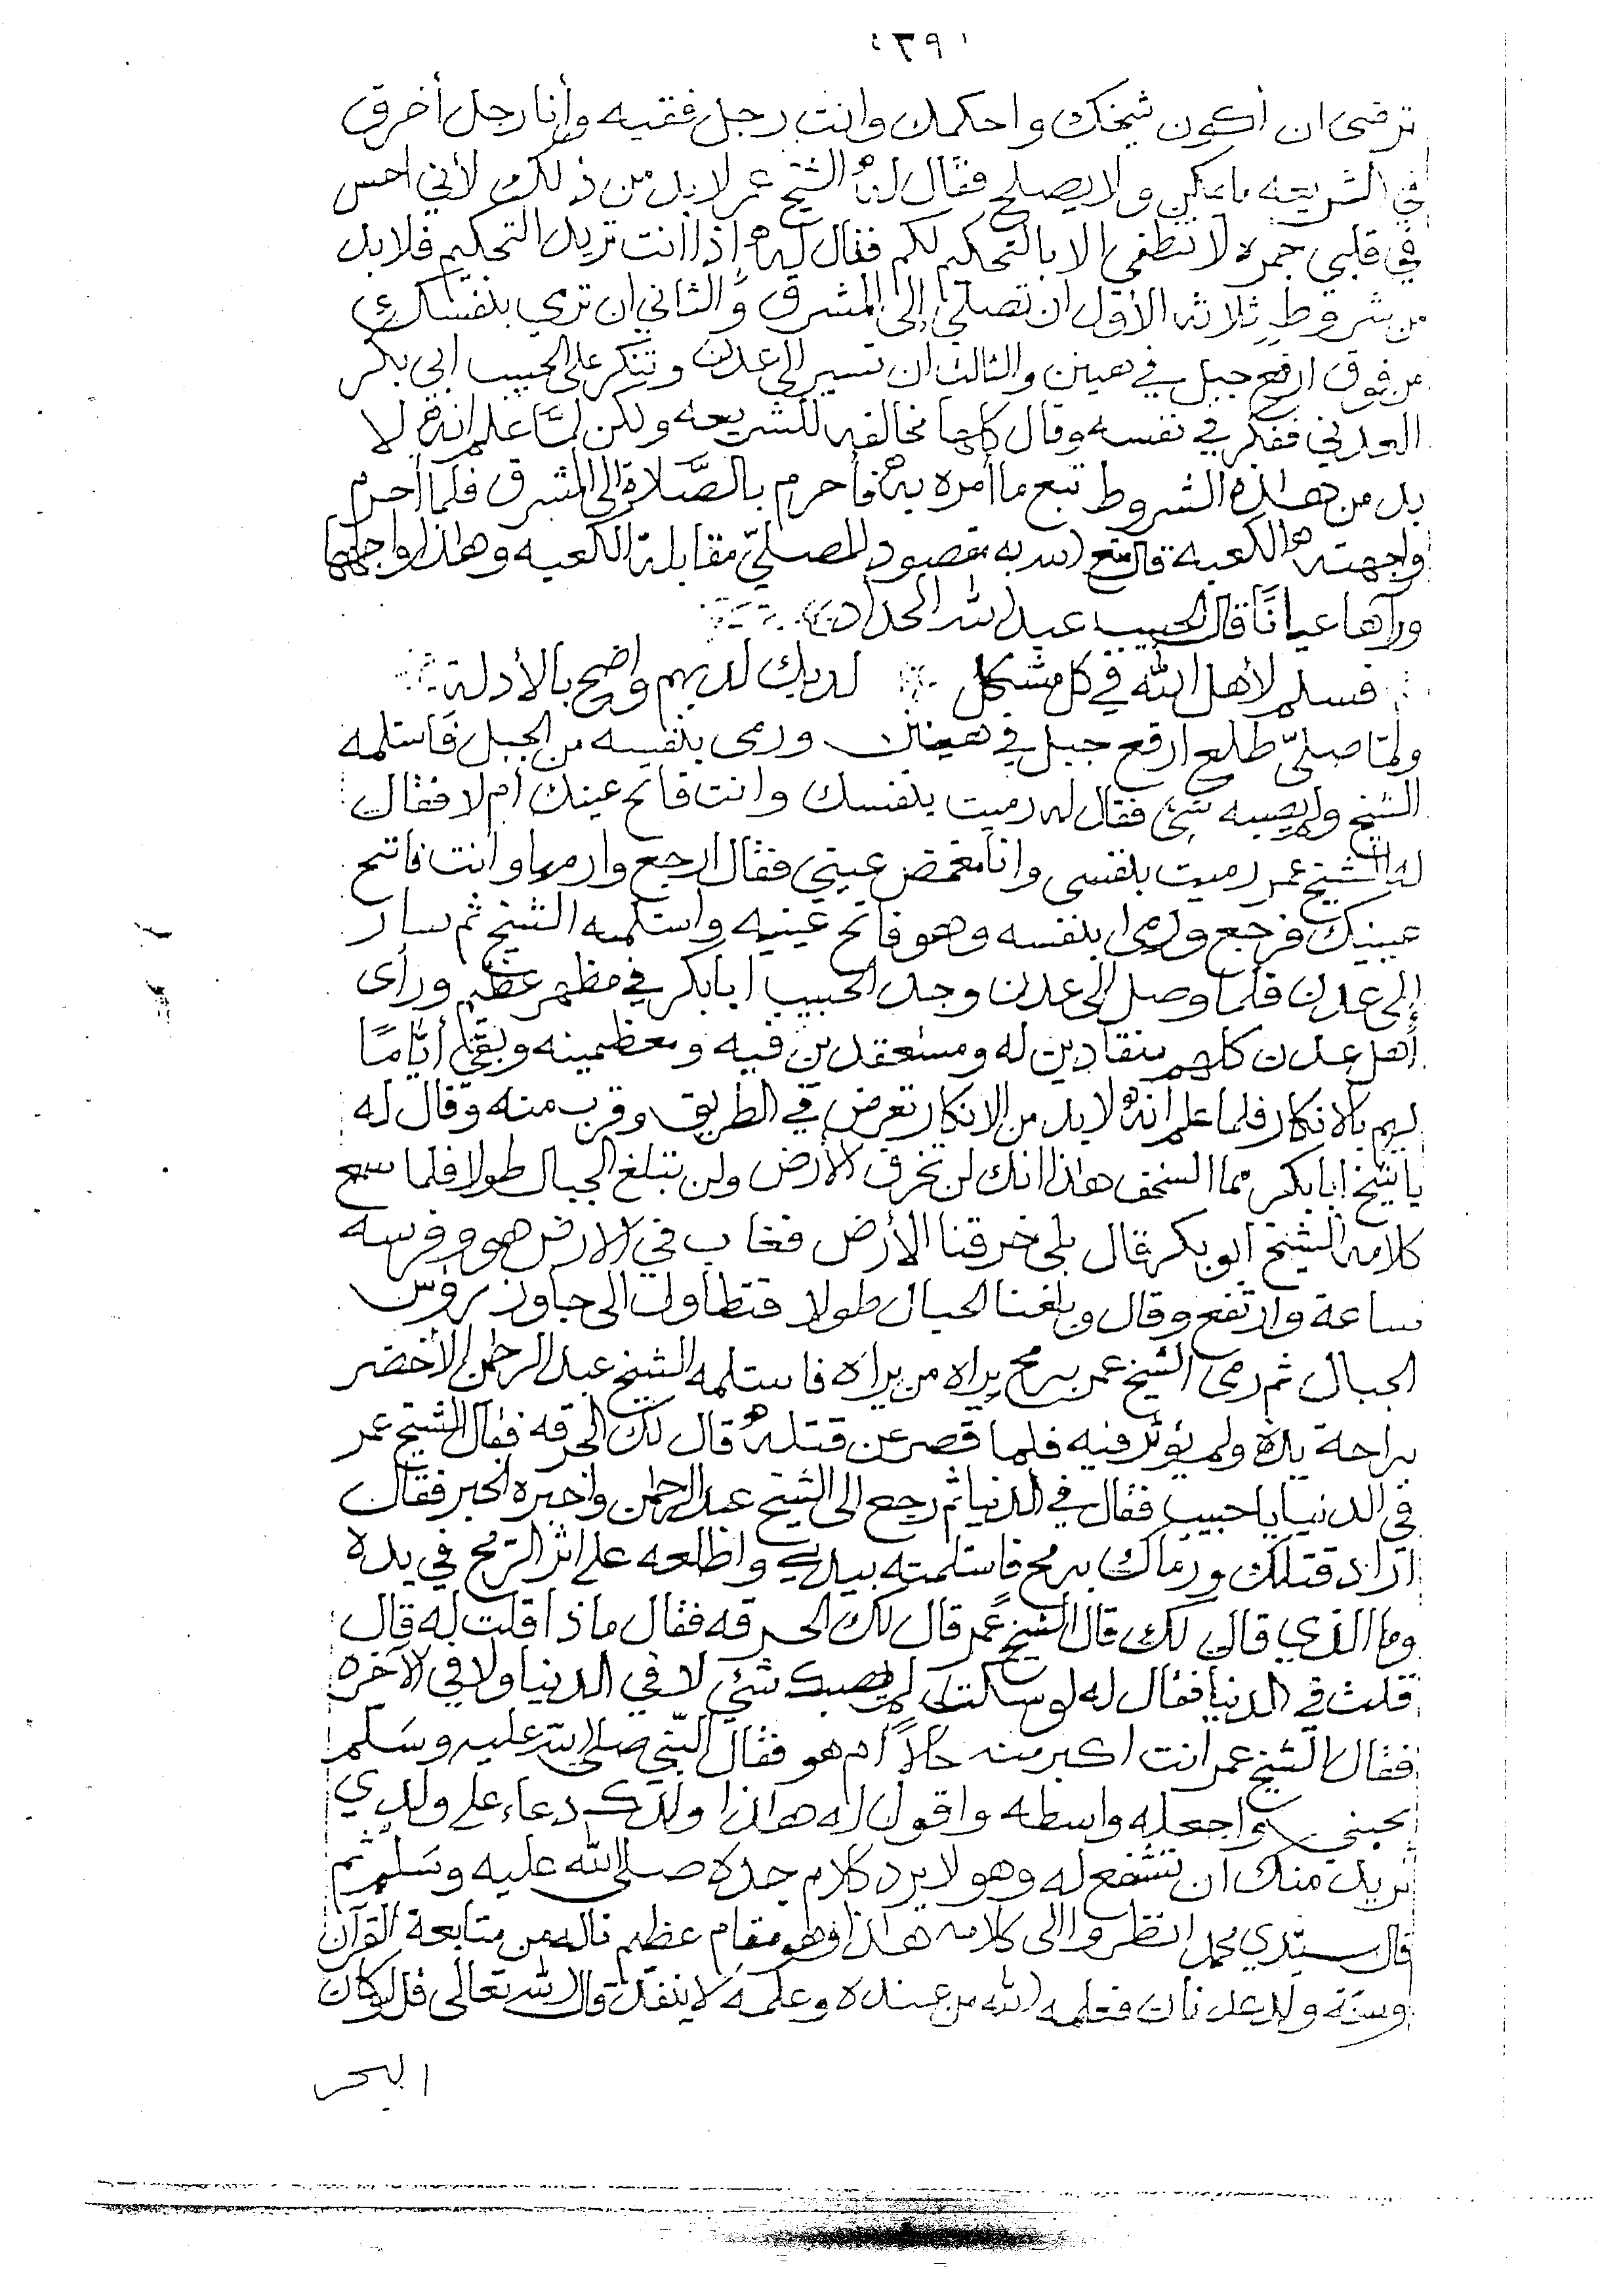 ٢٩١
ترضى ان أكون شيخك واحكمك وانت رجل فقيه وأنا رجل أخرق
في الشريعه ما يمكن ولا يصلح فقال لهُ الشيخ عمر لا بد من ذلك لأني احس
في قلبي جمره لا تنطفي الا بالتحكيم لكم فقال لهُ إذا انت تريد التحكيم فلا بد
من شروطٍ ثلاثه الأول ان تصلي إلى المشرق والثاني ان ترمي بنفسك
من فوق ارفع جبل في هينن والثالث ان تسير الى عدن وتنكر على الحبيب ابي بكر
العدني ففكر في نفسه وقال كلها مخالفه للشريعه ولكن لمّا علم انهُ لا
بد من هـذه الشروط تبع ما أمره بهُ فأحرم بالصَّلاة إلى المشرق فلما أحرم
واجهتهُ الكعبه قال متع الله به مقصود المصليّ مقابلة الكعبه وهذا واجهها
ورآها عيانًا قال الحبيب عبد الله الحداد
فسلم لأهل الله في كل مشكل لديك لديهم واضح بالأدلة
ولمّا صلىّ طلع ارفع جبل في هينن ورمى بنفسه من الجبل فاستلمه
الشيخ ولم يصيبه شئ فقال له رميت بنفسك وانت فاتح عينك أم لا فقال
له الشيخ عمر رميت بنفسي وانا مغمض عيني فقال ارجع وارم بها وانت فاتح
عينيك فرجع ورمى بنفسه وهو فاتح عينيه واستلمه الشيخ ثم سار
إلى عدن فلما وصل إلى عدن وجد الحبيب ابابكر في مظهر عظيم ورأى
أهل عدن كلهم منقادين له ومستعقدين فيه ومعظمينه وبقي أيّامًا
يهم بالانكار فلما علم انهُ لا بد من الانكار تعرض في الطريق وقرب منه وقال له
يا شيخ ابابكر مما السخف هذا انك لن تخرق الأرض ولن تبلغ الجبال طولا فلما سمع
كلامه الشيخ ابو بكر قال بلى خرقنا الأرض فغاب في الارض هو وفرسه
ساعة وارتفع وقال وبلغنا الجبال طولا فتطاول الى جاوز رؤس
الجبال ثم رمى الشيخ عمر برمح يراه من يراه فاستلمه الشيخ عبد الرحمن الأخضر
براحة يدهُ ولم يؤثر فيه فلما قصر عن قتلهُ قال لك الحرقه فقال الشيخ عمر
في الدنيا يا حبيب فقال في الدنيا ثم رجع الى الشيخ عبد الرحمن واخبره الخبر فقال
اراد قتلك ورماك برمح فاستلمته بيدي واطلعه على اثر الرمح في يده
وما الذي قال لك قال الشيخ عمر قال لك الحرقه فقال ماذا قلت له قال
قلت في الدنيا فقال له لو سكت لم يصبك شئ لا في الدنيا ولا في الآخره
فقال الشيخ عمر انت اكبر منه حالاً أم هو فقال النّبي صلى الله عليه وسَلم
يحبني واجعله واسطه واقول له هذا ولدك دعاء على ولدي
نريد منك ان تشفع له وهو لا يرد كلام جده صلى الله عليه وسَلم ثم
قال سيّدي محمد انظروا الى كلامه هـذا فهو مقام عظيم ناله من متابعة القرآن
وسنة ولد عدنان فعلمه الله من عنده وعلمه لا ينفد قال الله تعالى قل لو كان
البحر